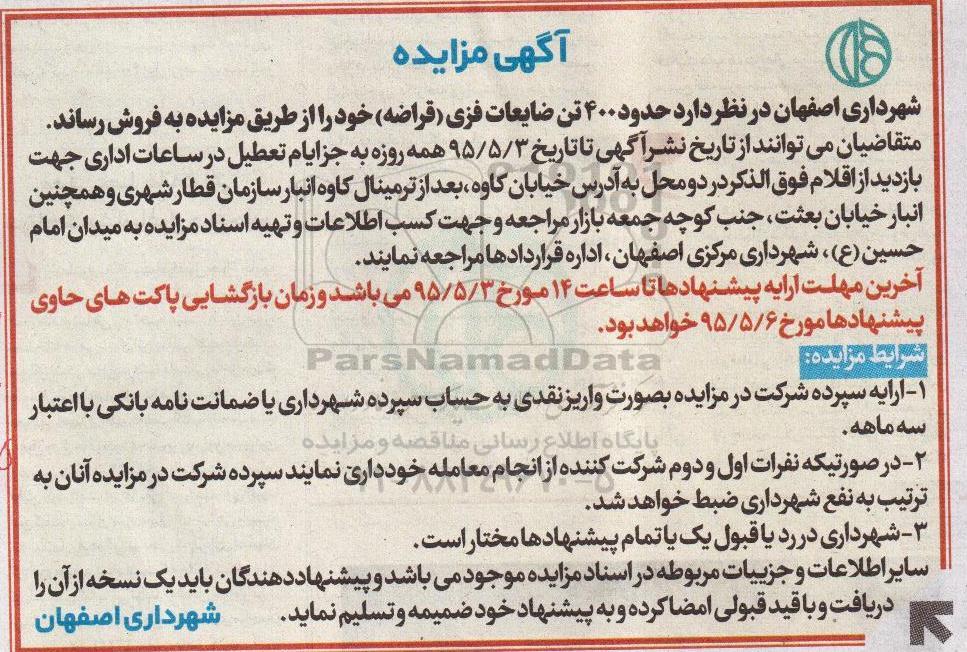 آگهی مزایده
شهرداری اصفهان در نظر دارد حدود ۴۰۰ تن ضایعات فزی (قراضه) خود را از طریق مزایده به فروش رساند.
متقاضیان می توانند از تاریخ نشر آگهی تا تاریخ ۹۵/۵/۳ همه روزه به جز ایام تعطیل در ساعات اداری جهت
بازدید از اقلام فوق الذکر در دو محل به آدرس خیابان کاوه، بعد از ترمینال کاوه انبار سازمان قطار شهری و همچنین
انبار خیابان بعثت، جنب کوچه جمعه بازار مراجعه و جهت کسب اطلاعات و تهیه اسناد مزایده به میدان امام
حسین (ع)، شهرداری مرکزی اصفهان، اداره قراردادها مراجعه نمایند.
آخرین مهلت ارایه پیشنهادها تا ساعت ۱۴ مورخ ۹۵/۵/۳ می باشد و زمان بازگشایی پاکت های حاوی
پیشنهادها مورخ ۹۵/۵/۶ خواهد بود.
ParsNamadData
شرایط مزایده:
۱-ارایه سپرده شرکت در مزایده بصورت واریز نقدی به حساب سپرده شهرداری یا ضمانت نامه بانکی با اعتبار
سه ماهه.
پایگاه اطلاع رسانی مناقصه و مزایده
۲-در صورتیکه نفرات اول و دوم شرکت کننده از انجام معامله خودداری نمایند سپرده شرکت در مزایده آنان به
ترتیب به نفع شهرداری ضبط خواهد شد.
۳-شهرداری در رد یا قبول یک یا تمام پیشنهادها مختار است.
سایر اطلاعات و جزییات مربوطه در اسناد مزایده موجود می باشد و پیشنهاددهندگان باید یک نسخه از آن را
دریافت و با قید قبولی امضا کرده و به پیشنهاد خود ضمیمه و تسلیم نماید.
شهرداری اصفهان